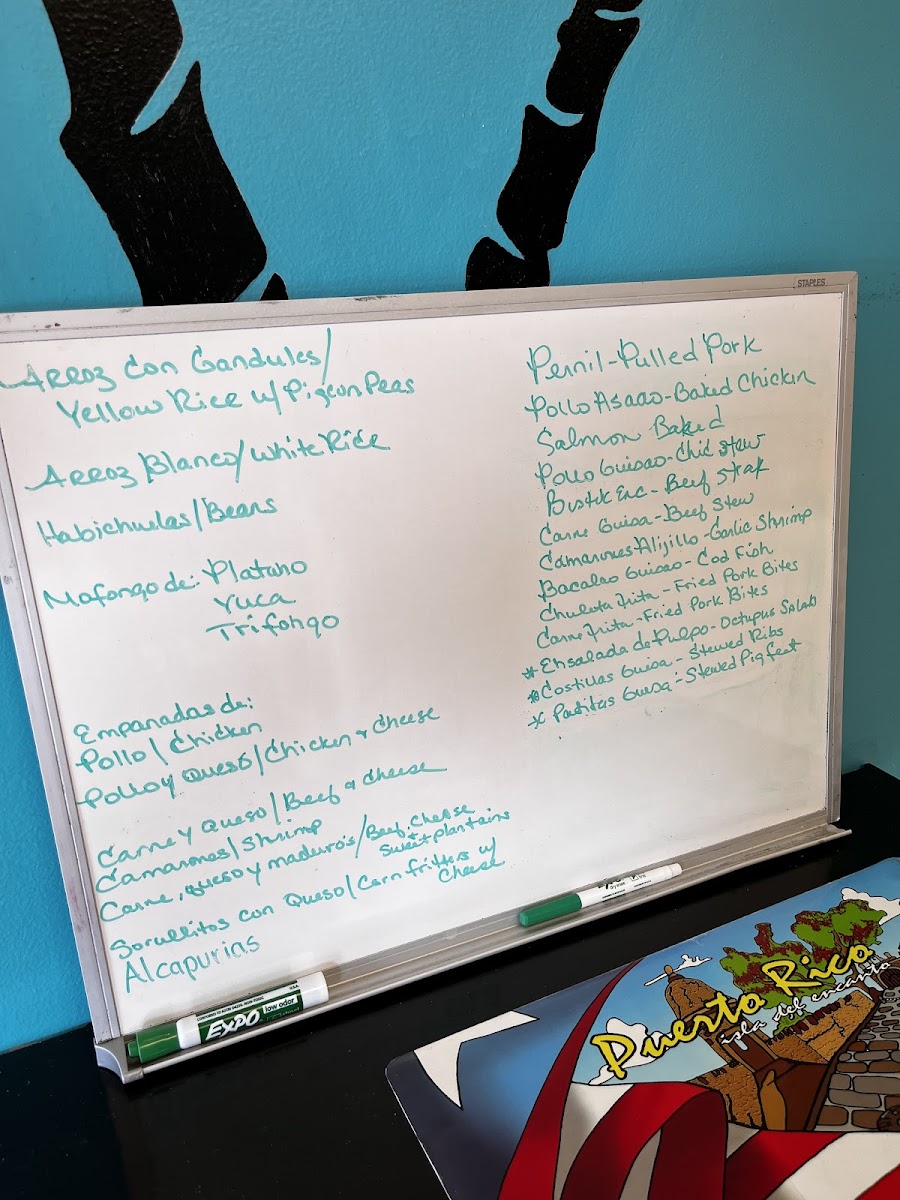 STAPLES
Arroz Con Gandules/
Yellow Rice w/ Pigeon Peas
Arroz Blanco/White Rice
Habichuelas/Beans
Mofongo de: Platano
Yuca
Trifongo
Empanadas de:
Pollo/Chicken
Pollo y Queso/Chicken & Cheese
Carne y Queso/Beef & Cheese
Camarones/Shrimp
Carne, queso y maduros/Beef, Cheese +
Sweet plantains
Sorullitos con Queso/Corn fritters w/
Cheese
Alcapurias
Pernil-Pulled Pork
Pollo Asaao-Baked Chicken
Salmon Baked
Pollo Guisao-Chic Stew
Bistek Enc-Beef Steak
Carne Guisa-Beef Stew
Camarones Alijillo-Garlic Shrimp
Bacalao Guisao-Cod Fish
Chuleta Frita-Fried Pork Bites
Carne Frita-Fried Pork Bites
*Ensalada de Pulpo-Octupus Salad
*Costillas Guisa-Stewed Ribs
*Patitas Guisa-Stewed Pig feet
EXPO low odor
U.S.A.
Puerto Rico
isla del encanto